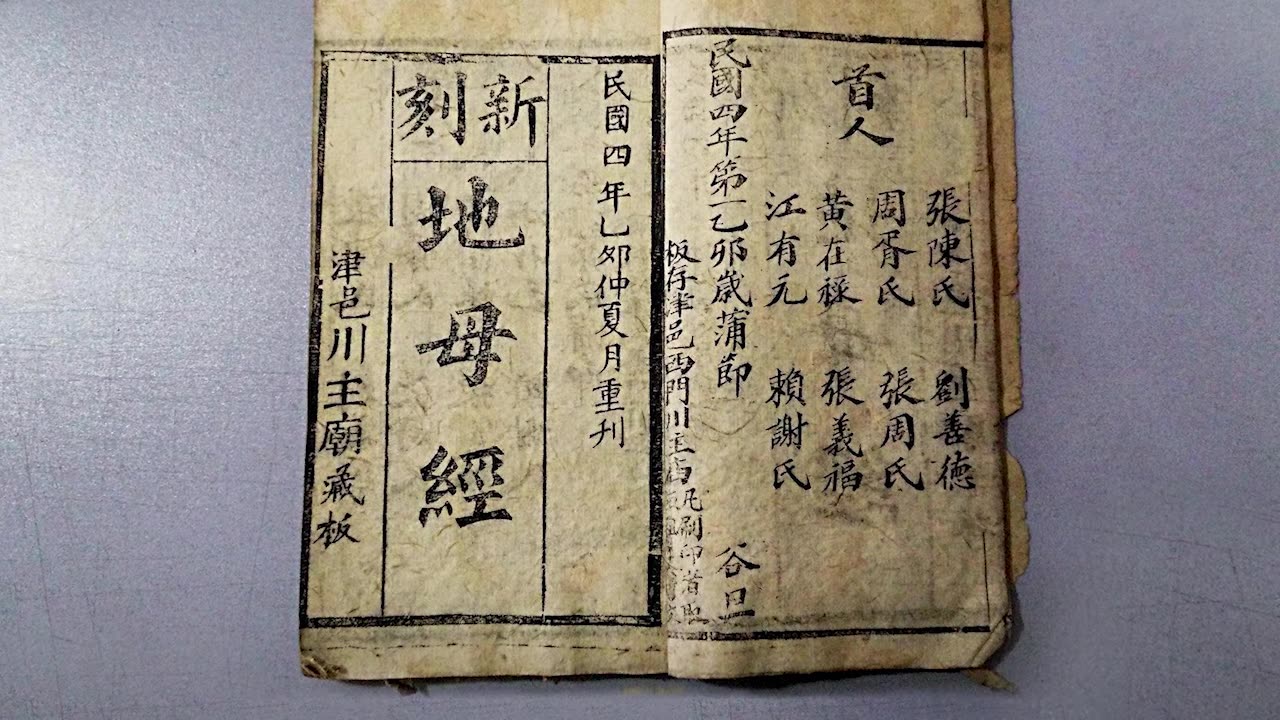 首人
張陳氏 劉善德
周胥氏 張周氏
黄在祿 張義福
江有元 賴謝氏
民國四年第一乙卯歲蒲節 谷旦
板存津邑西門川主
凡刷印者
民國四年乙夘仲夏月重刋
新刻
地母經
津邑川主廟藏板